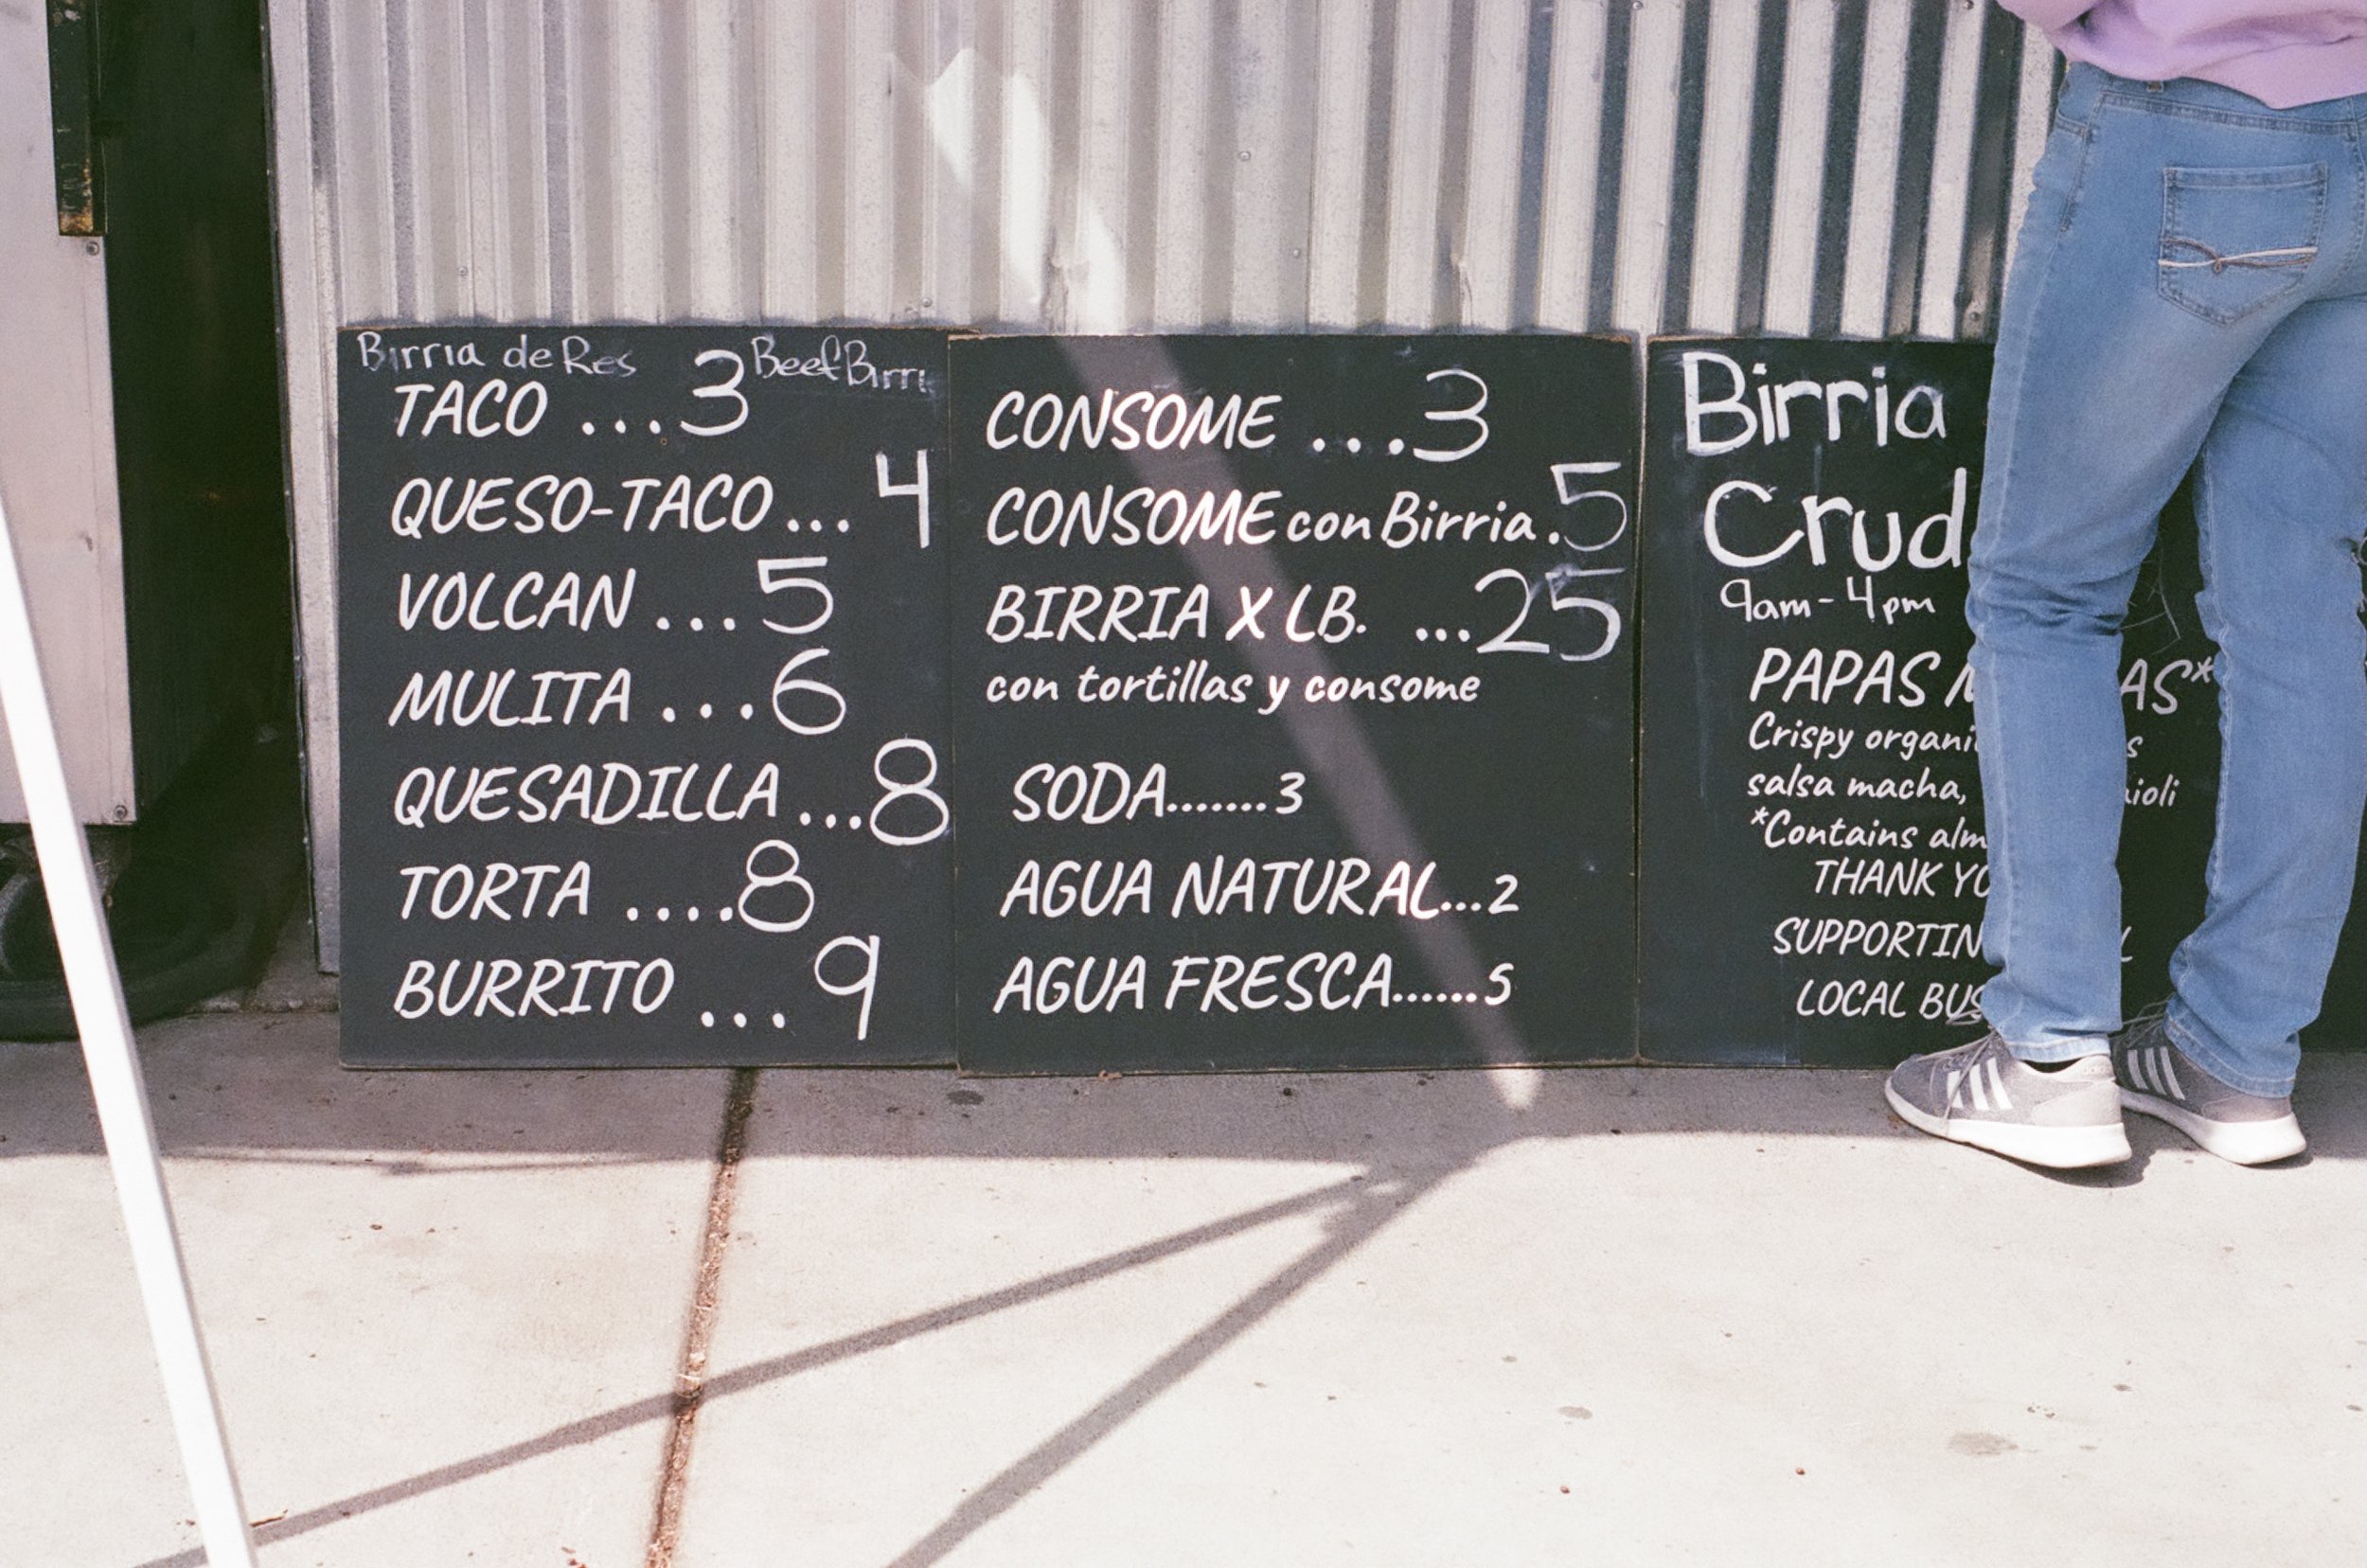 Birria de Res Beef Birri
TACO ...3
QUESO-TACO... 4
VOLCAN ...5
MULITA ...6
QUESADILLA ...8
TORTA ....8
BURRITO ...9
CONSOME ...3
CONSOME con Birria .5
BIRRIA X LB. ...25
con tortillas y consome
SODA.......3
AGUA NATURAL...2
AGUA FRESCA......5
Birria
Crud
9am-4pm
PAPAS
Crispy
salsa macha,
*Contains
THANK
LOCAL